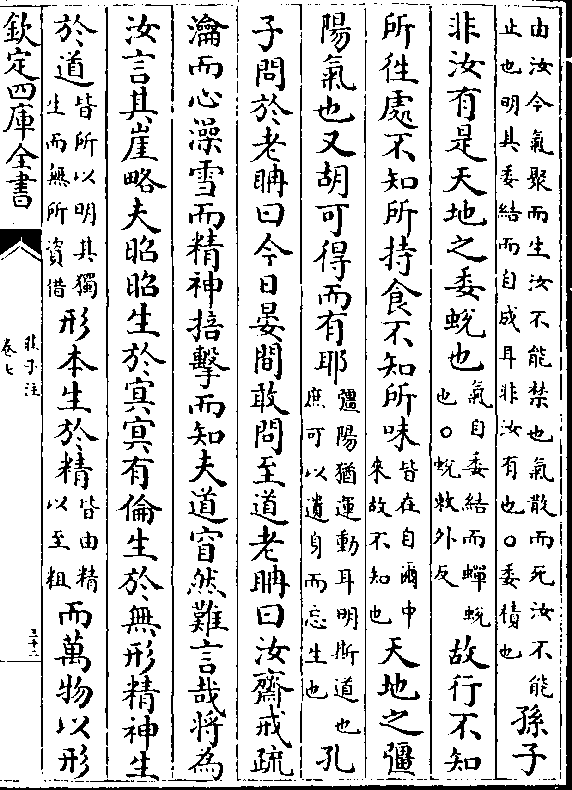 由汝今氣聚而生汝不能禁也氣散而死汝不能
止也明其委結而自成耳非汝有也○委積也
孫子
非汝有是天地之委蛻也
氣自委結而蟬蛻
也○蛻敕外反
故行不知
所徃處不知所持食不知所味
皆在自爾中
來故不知也
天地之彊
陽氣也又胡可得而有耶
彊陽猶運動耳明斯道也
庶可以遺身而忘生也
孔
子問於老聃曰今日晏閒敢問至道老聃曰汝齋戒疏
瀹而心澡雪而精神掊擊而知夫道窅然難言哉將為
汝言其崖略夫昭昭生於冥冥有倫生於無形精神生
於道
皆所以明其獨
生而無所資借
形本生於精
皆由精
以至粗
而萬物以形
欽定四庫全書
莊子注
卷七
三十二